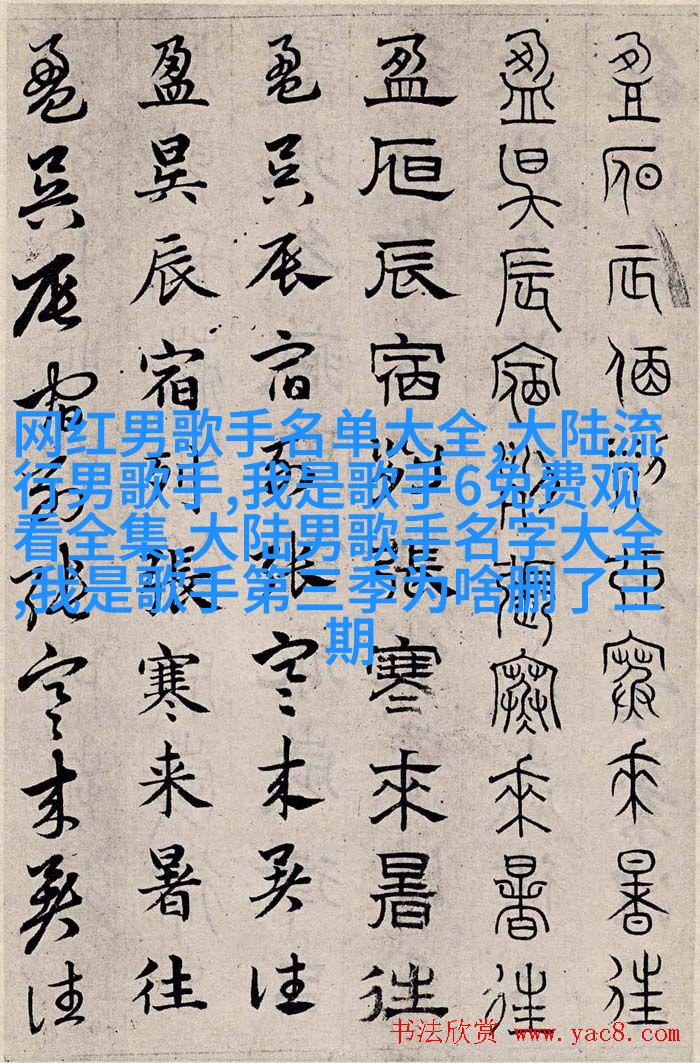 盈昃辰宿列張寒來暑往
盈昃辰宿列張寒來暑往
盈昃辰宿列張寒來暑往
盈昃辰宿列張寒来暑往
盈昃辰宿列張寒来暑往
盈昃辰宿列張寒来暑往
网红男歌手名单大全 大陆流
行男歌手,我是歌手6免费观
看全集 大陆男歌手名字大全
,我是歌手第三季为啥删了三
期
书法欣赏 www.yac8.com